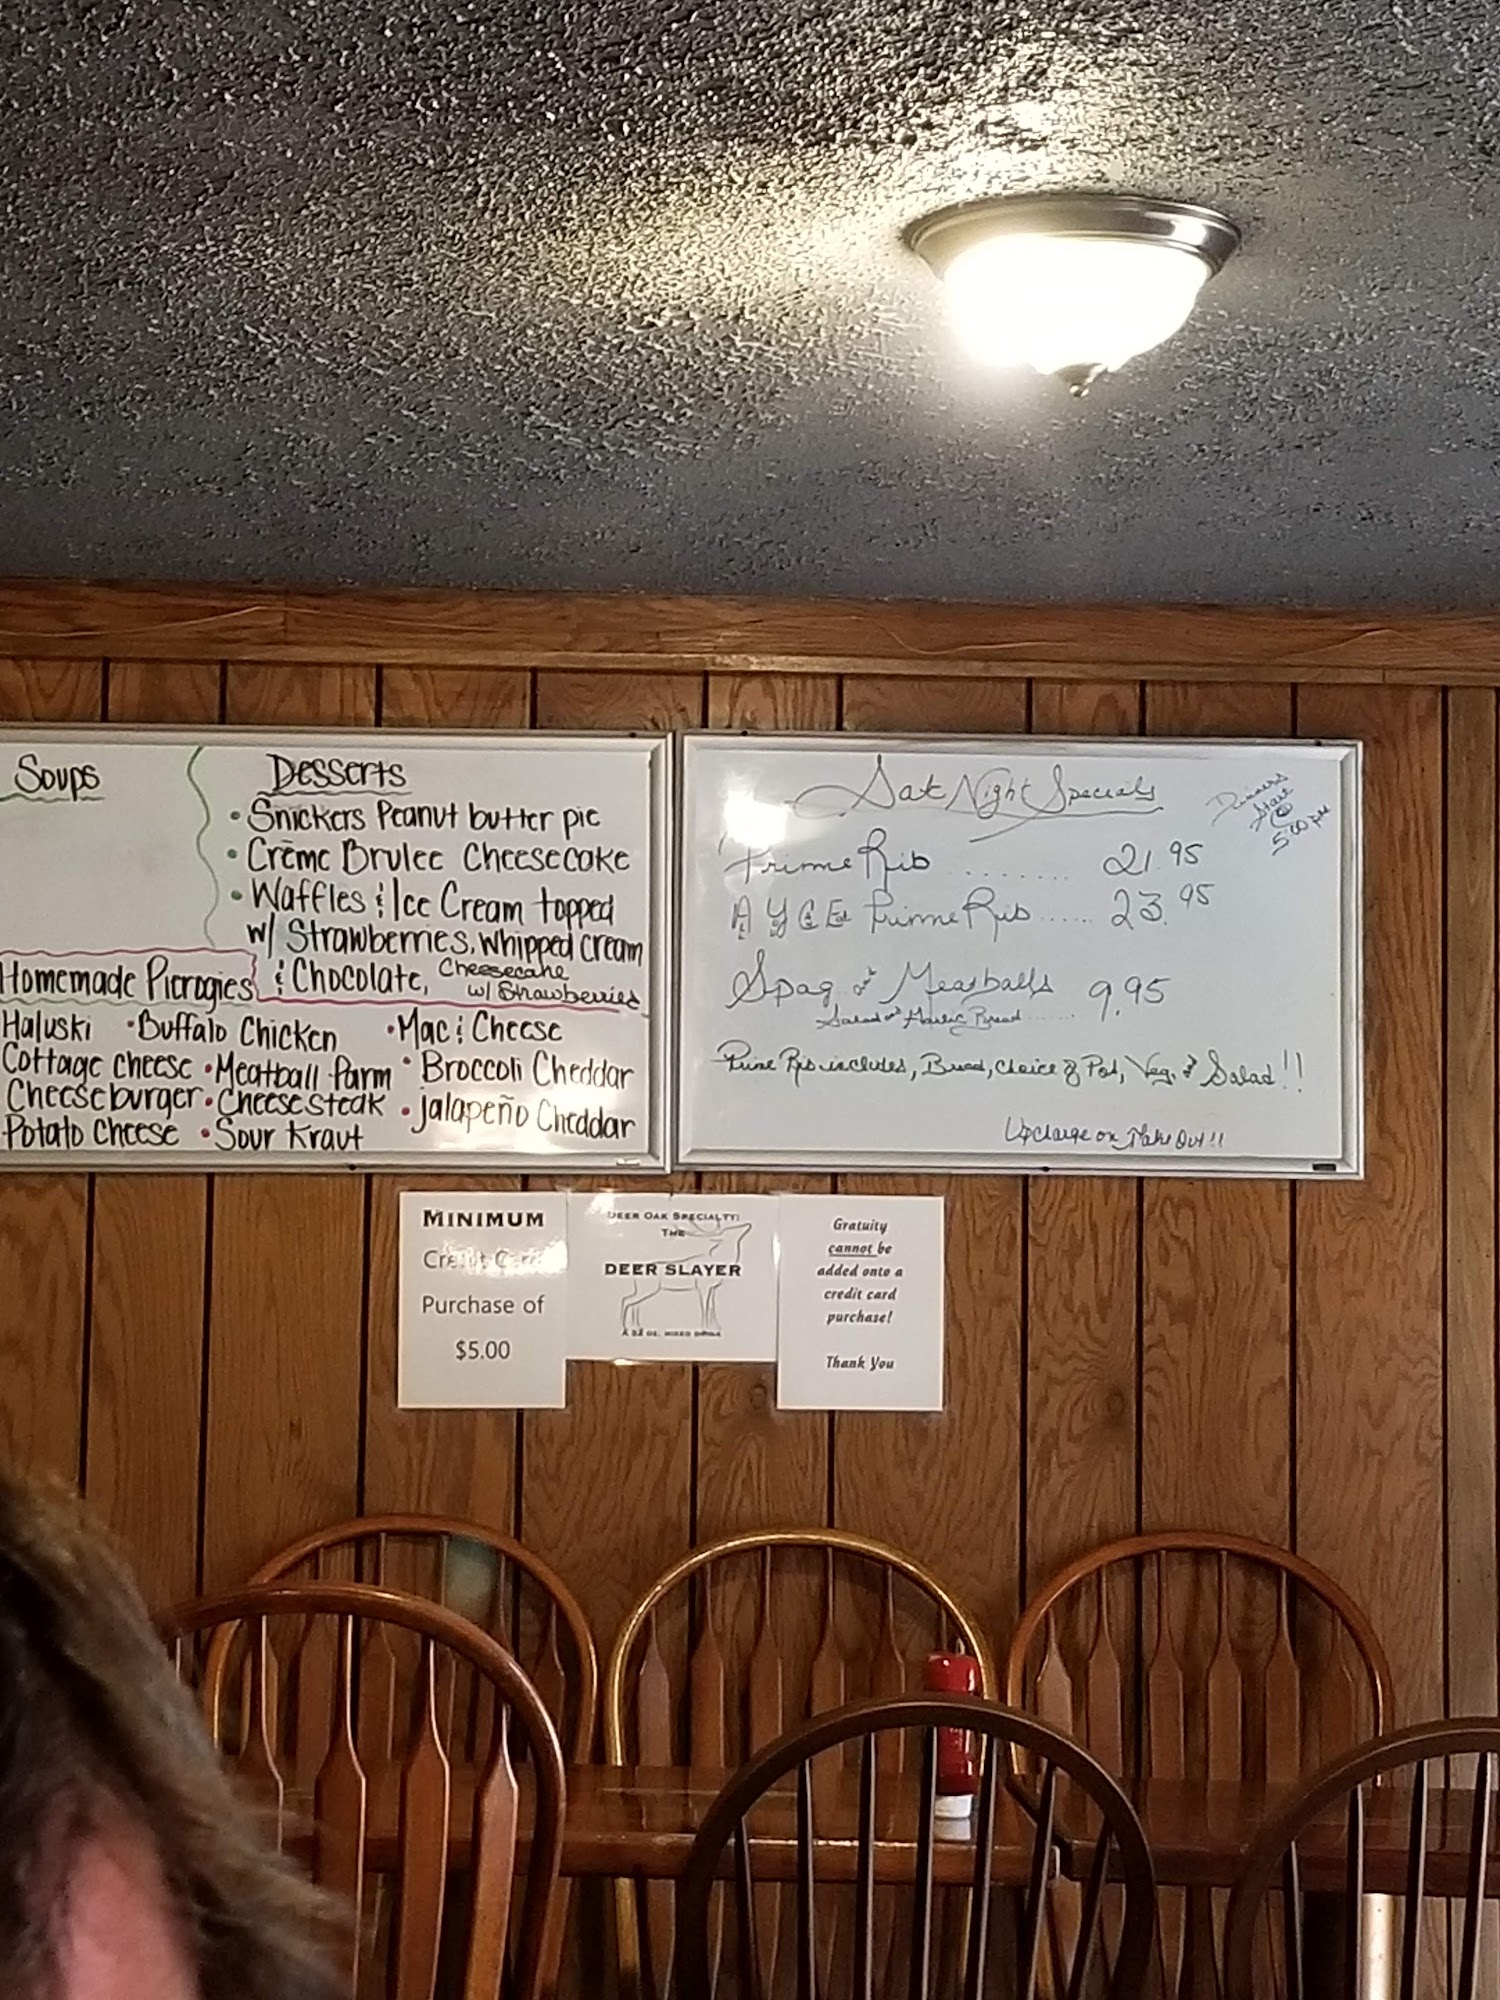 Soups
Desserts
• Snickers Peanut butter pie
• Crème Brulee Cheesecake
• Waffles & Ice Cream topped
w/ Strawberries, whipped cream
& Chocolate, Cheesecake
w/ Strawberries
Homemade Pierogies
Haluski • Buffalo Chicken • Mac & Cheese
Cottage cheese • Meatball Parm • Broccoli Cheddar
Cheeseburger • Cheesesteak • Jalapeño Cheddar
Potato Cheese • Sour Kraut
Sat Night Specials
Dinners
Start
@
5:00 pm
Prime Rib ........ 21.95
AYCE Prime Rib ...... 23.95
Spag and Meatballs 9.95
Salad and Garlic Bread ......
Prime Rib includes, Bread, choice of Pot, Veg. and Salad!!
Upcharge on Take Out!!
MINIMUM
Credit Card
Purchase of
$5.00
DEER OAK SPECIALTY:
THE
DEER SLAYER
OZ. MIXED DRINK
Gratuity
cannot be
added onto a
credit card
purchase!
Thank You